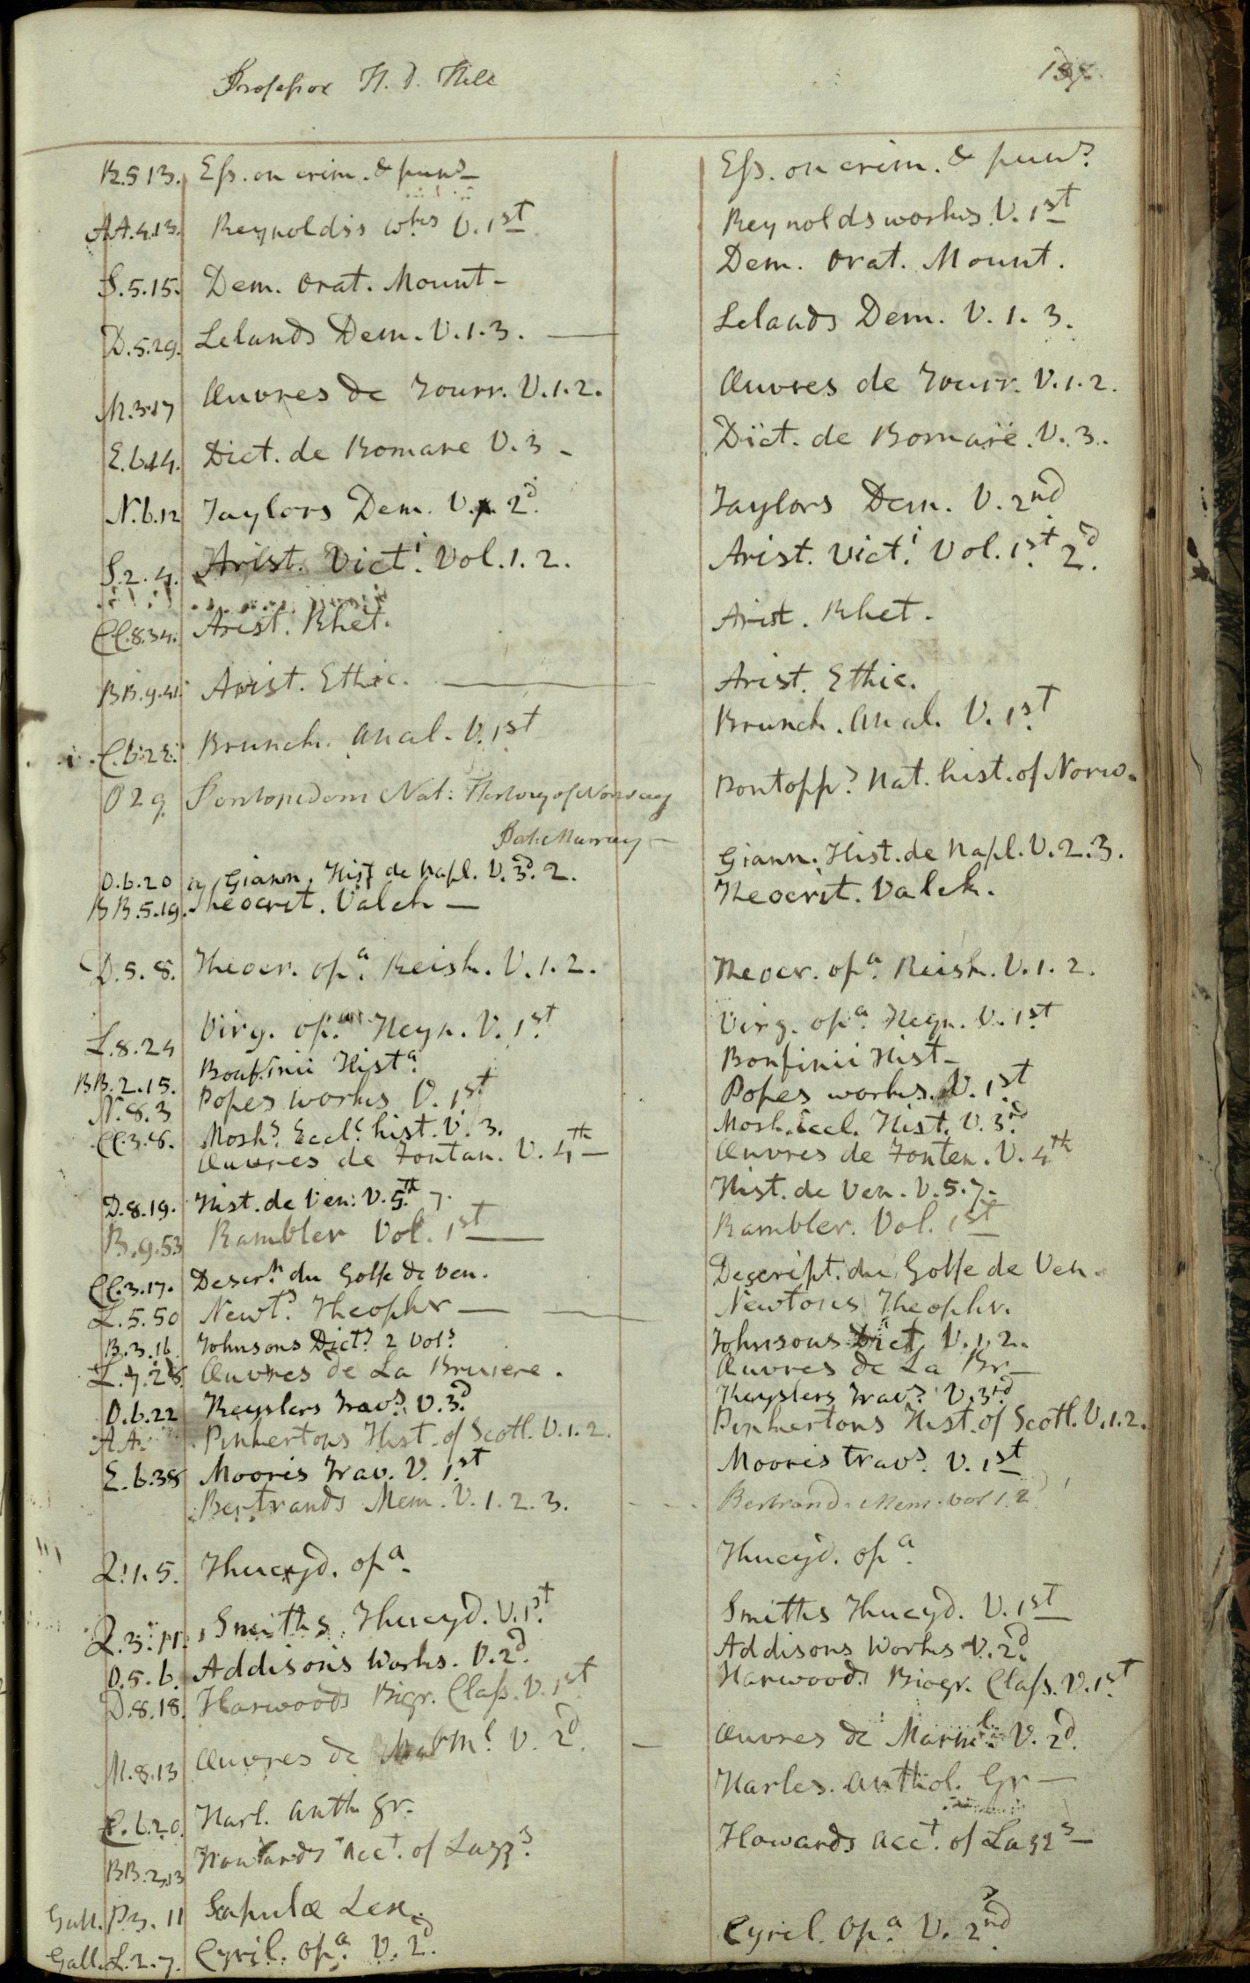 Professor H. D. Hill
R.5 13. Ess. on crim. & puns Ess. on crim. & puns
AA.4.13. Reynolds's wks V. 1st Reynolds works V. 1st
S.5.15. Dem. Orat. Mount - Dem. Orat. Mount.
D.5.29. Lelands Dem. V. 1. 3. Lelands Dem. V. 1. 3.
M.3.17 Œuvres de Tourr. V. 1. 2. Œuvres de Tourr. V. 1. 2.
E.6.14. Dict. de Bomare V. 3 - Dict. de Bomare. V. 3.
N.6.12 Taylors Dem. V. 2d. Taylors Dem. V. 2nd
S.2.4. Arist. Victi. Vol. 1. 2. Arist. Victi. Vol. 1st. 2d.
CC.8.34. Arist. Rhet. Arist. Rhet.
BB.9.41. Arist. Ethic. Arist. Ethic.
C.6.28. Brunck. Anal. V. 1st Brunck. Anal. V. 1st.
O 2 9. Pontopidom Nat: History of Norway Pontopps. Nat. hist. of Norw.
Pat: Murray -
O.6.20 Giann. Hist de Napl. V. 3d. 2. Giann. Hist. de Napl. V. 2. 3.
BB.5.19. Theocrit. Valck — Theocrit. Valck.
D.5.8. Theocr. opa. Reisk. V. 1. 2. Theocr. opa. Reisk. V. 1. 2.
L.8.24 Virg. op. Heyn. V. 1st. Virg. opa. Heyn. V. 1st.
BB.2.15. Bonfinii Hista. Bonfinii Hist -
N.8.3 Popes works V. 1st Popes works. V. 1st.
CC.3.8. Moshs. Eccl. hist. V. 3. Mosh. Eccl. Hist. V. 3d.
Œuvres de Fontan. V. 4th - Œuvres de Fonten. V. 4th
D.8.19. Hist. de Ven: V. 5th. 7. Hist. de Ven. V. 5. 7.
B.9.53 Rambler Vol. 1st — Rambler. Vol. 1st
CC.3.17. Descrn. du Golfe de Ven. Descript. du Golfe de Ven.
L.5.50 Newts. Theophr — Newtons Theophr.
B.3.16. Johnsons Dict. 2 Vols Johnsons Dict V. 1. 2.
L.7.28. Œuvres de La Bruiere. Œuvres de La Br —
O.6.22 Keyslers Travs. V. 3d. Keyslers Travs. V. 3rd
AA. Pinkertons Hist. of Scotl. V. 1. 2. Pinkertons Hist. of Scotl. V. 1. 2.
E.6.38 Moores Trav. V. 1st. Moores travs. V. 1st
Bertrands Mem. V. 1. 2. 3. Bertrands Mem. vol 1. 2
Q.1.5. Thucyd. opa. Thucyd. opa.
Q.3.11. Smiths Thucyd. V. 1st. Smiths Thucyd. V. 1st
O.5.6. Addisons Works. V. 2d. Addisons Works V. 2d.
D.8.18. Harwoods Bigr. Class. V. 1st Harwoods Biogr. Class. V. 1st.
M.8.13 Œuvres de Marml. V. 2d. Œuvres de Marml. V. 2d.
C.6.20. Harl. Anth. gr. Harles. Anthol. Gr —
BB.2.13 Howards Acct. of Lazzs. Howards Acct. of Lazzs —
Gall. P.3. 11 Scapulæ Lex.
Gall. L.2.7. Cyril. Opa. V. 2d. Cyril. Opa. V. 2nd.